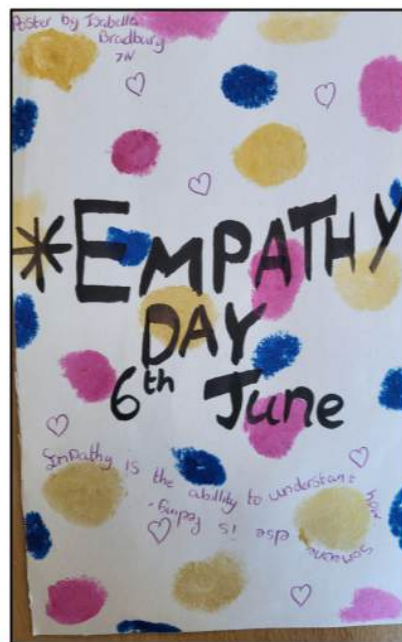 Poster by Isabella
Bradbury
7N
*EMPATHY
DAY
6th June
Empathy is the abillity to understant how
someone else is feeling.